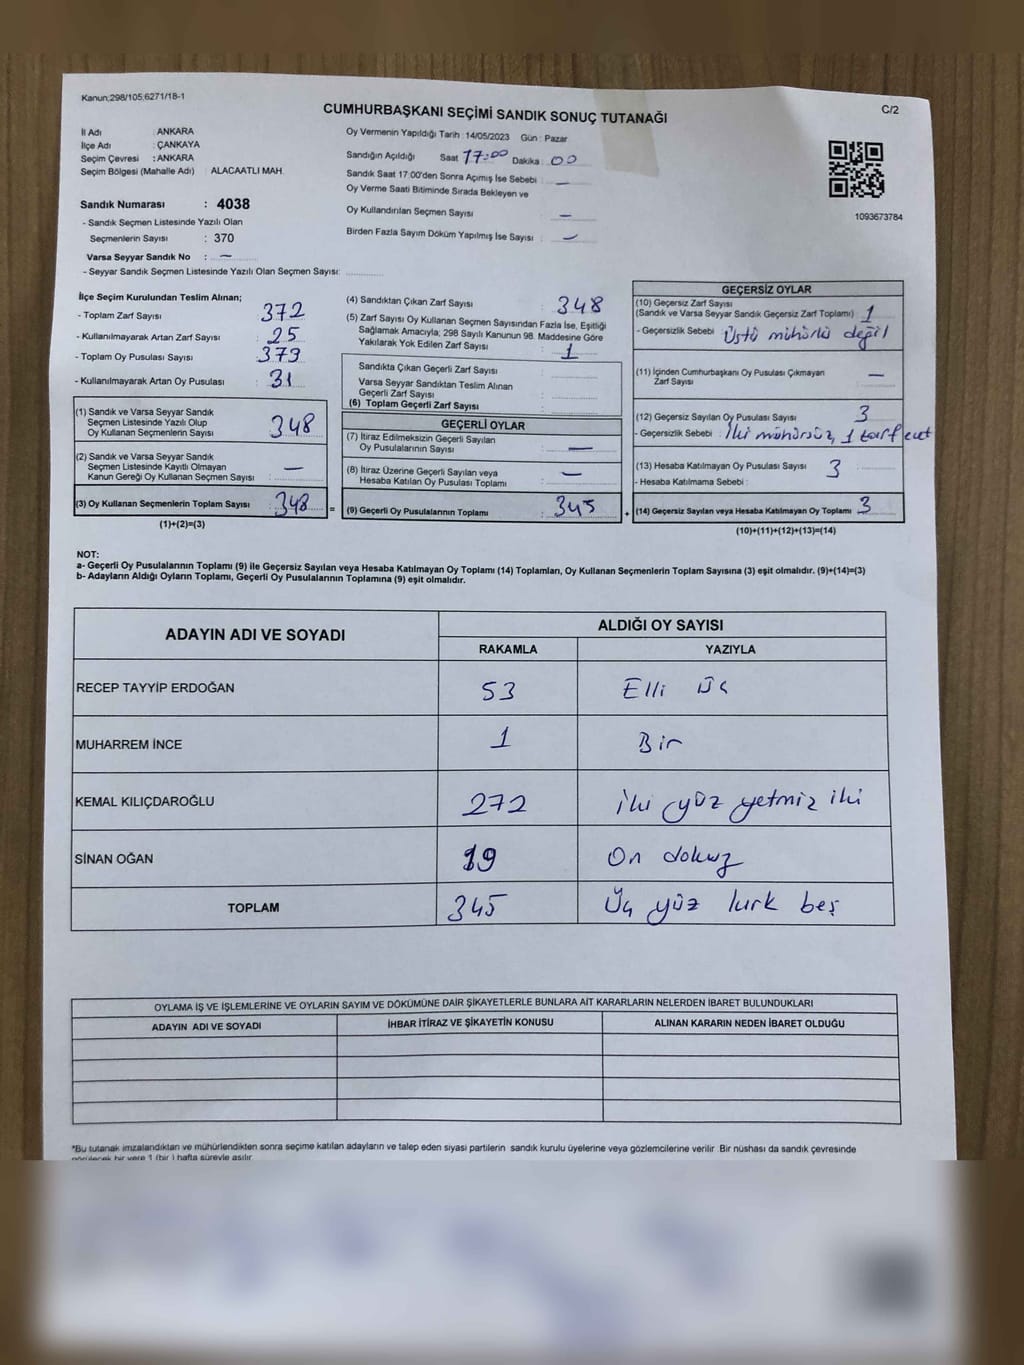 Kanun;298/105;6271/18-1
C/2
CUMHURBAŞKANI SEÇİMİ SANDIK SONUÇ TUTANAĞI
İl Adı : ANKARA
İlçe Adı : ÇANKAYA
Seçim Çevresi : ANKARA
Seçim Bölgesi (Mahalle Adı) ALACAATLI MAH.
Sandık Numarası : 4038
- Sandık Seçmen Listesinde Yazılı Olan
Seçmenlerin Sayısı : 370
Varsa Seyyar Sandık No : —
- Seyyar Sandık Seçmen Listesinde Yazılı Olan Seçmen Sayısı:
Oy Vermenin Yapıldığı Tarih : 14/05/2023 Gün : Pazar
Sandığın Açıldığı Saat 17:00 Dakika : 00
Sandık Saat 17:00'den Sonra Açımış İse Sebebi : —
Oy Verme Saati Bitiminde Sırada Bekleyen ve
Oy Kullandırılan Seçmen Sayısı : —
Birden Fazla Sayım Döküm Yapılmış İse Sayısı : —
1093673784
İlçe Seçim Kurulundan Teslim Alınan;
- Toplam Zarf Sayısı : 372
- Kullanılmayarak Artan Zarf Sayısı : 25
- Toplam Oy Pusulası Sayısı : 379
- Kullanılmayarak Artan Oy Pusulası : 31
(1) Sandık ve Varsa Seyyar Sandık
Seçmen Listesinde Yazılı Olup
Oy Kullanan Seçmenlerin Sayısı : 348
(2) Sandık ve Varsa Seyyar Sandık
Seçmen Listesinde Kayıtlı Olmayan
Kanun Gereği Oy Kullanan Seçmen Sayısı : —
(3) Oy Kullanan Seçmenlerin Toplam Sayısı : 348 =
(1)+(2)=(3)
(4) Sandıktan Çıkan Zarf Sayısı : 348
(5) Zarf Sayısı Oy Kullanan Seçmen Sayısından Fazla İse, Eşitliği
Sağlamak Amacıyla; 298 Sayılı Kanunun 98. Maddesine Göre
Yakılarak Yok Edilen Zarf Sayısı : 1
Sandıkta Çıkan Geçerli Zarf Sayısı :
Varsa Seyyar Sandıktan Teslim Alınan
Geçerli Zarf Sayısı :
(6) Toplam Geçerli Zarf Sayısı :
GEÇERLİ OYLAR
(7) İtiraz Edilmeksizin Geçerli Sayılan
Oy Pusulalarının Sayısı : —
(8) İtiraz Üzerine Geçerli Sayılan veya
Hesaba Katılan Oy Pusulası Toplamı : —
(9) Geçerli Oy Pusulalarının Toplamı : 345 +
GEÇERSİZ OYLAR
(10) Geçersiz Zarf Sayısı
(Sandık ve Varsa Seyyar Sandık Geçersiz Zarf Toplamı) : 1
- Geçersizlik Sebebi : Üstü mühürlü değil
(11) İçinden Cumhurbaşkanı Oy Pusulası Çıkmayan
Zarf Sayısı : —
(12) Geçersiz Sayılan Oy Pusulası Sayısı : 3
- Geçersizlik Sebebi : İki mühürsüz, 1
(13) Hesaba Katılmayan Oy Pusulası Sayısı : 3
- Hesaba Katılmama Sebebi :
(14) Geçersiz Sayılan veya Hesaba Katılmayan Oy Toplamı : 3
(10)+(11)+(12)+(13)=(14)
NOT:
a- Geçerli Oy Pusulalarının Toplamı (9) ile Geçersiz Sayılan veya Hesaba Katılmayan Oy Toplamı (14) Toplamları, Oy Kullanan Seçmenlerin Toplam Sayısına (3) eşit olmalıdır. (9)+(14)=(3)
b- Adayların Aldığı Oyların Toplamı, Geçerli Oy Pusulalarının Toplamına (9) eşit olmalıdır.
ADAYIN ADI VE SOYADI ALDIĞI OY SAYISI
RAKAMLA YAZIYLA
RECEP TAYYİP ERDOĞAN 53 Elli Üç
MUHARREM İNCE 1 Bir
KEMAL KILIÇDAROĞLU 272 İki yüz yetmiz iki
SİNAN OĞAN 19 On dokuz
TOPLAM 345 Üç yüz kırk beş
OYLAMA İŞ VE İŞLEMLERİNE VE OYLARIN SAYIM VE DÖKÜMÜNE DAİR ŞİKAYETLERLE BUNLARA AİT KARARLARIN NELERDEN İBARET BULUNDUKLARI
ADAYIN ADI VE SOYADI İHBAR İTİRAZ VE ŞİKAYETİN KONUSU ALINAN KARARIN NEDEN İBARET OLDUĞU
*Bu tutanak imzalandıktan ve mühürlendikten sonra seçime katılan adayların ve talep eden siyasi partilerin sandık kurulu üyelerine veya gözlemcilerine verilir .Bir nüshası da sandık çevresinde
görülecek bir yere 1 (bir ) hafta süreyle asılır.